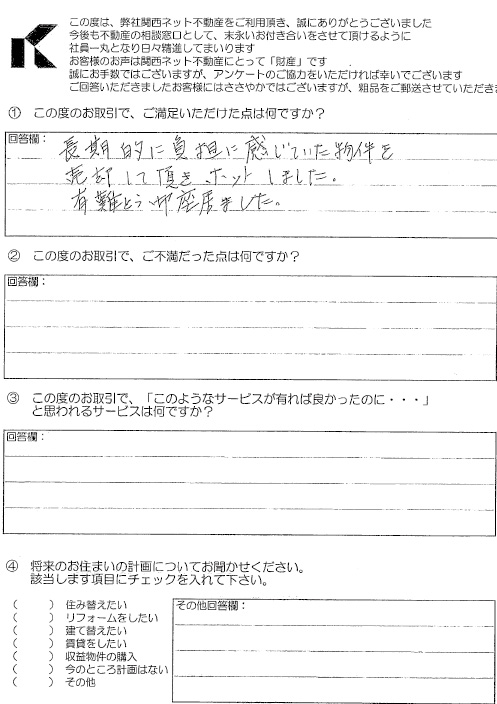 この度は、弊社関西ネット不動産をご利用頂き、誠にありがとうございました
今後も不動産の相談窓口として、末永いお付き合いをさせて頂けるように
社員一丸となり日々精進してまいります
お客様のお声は関西ネット不動産にとって「財産」です
誠にお手数ではございますが、アンケートのご協力をいただければ幸いでございます
ご回答いただきましたお客様にはささやかではございますが、粗品をご郵送させていただきま
① この度のお取引で、ご満足いただけた点は何ですか？
回答欄：
長期的に負担に感じていた物件を
売却して頂きホットしました。
有難とう御座居ました。
② この度のお取引で、ご不満だった点は何ですか？
回答欄：
③ この度のお取引で、「このようなサービスが有れば良かったのに・・・」
と思われるサービスは何ですか？
回答欄：
④ 将来のお住まいの計画についてお聞かせください。
該当します項目にチェックを入れて下さい。
（　　） 住み替えたい
（　　） リフォームをしたい
（　　） 建て替えたい
（　　） 賃貸をしたい
（　　） 収益物件の購入
（　　） 今のところ計画はない
（　　） その他
その他回答欄：